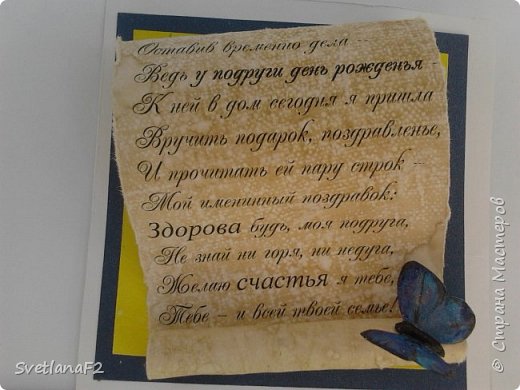 Оставив временно дела –
Ведь у подруги день рожденья –
К ней в дом сегодня я пришла
Вручить подарок, поздравленье,
И прочитать ей пару строк –
Мой именинный поздравок:
Здорова будь, моя подруга,
Не знай ни горя, ни недуга,
Желаю счастья я тебе,
Тебе – и всей твоей семье!
SvetlanaF2
© Страна Мастеров